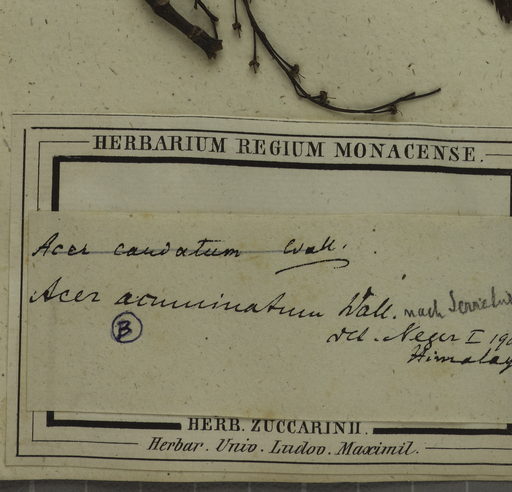 HERBARIUM REGIUM MONACENSE.
Acer caudatum Wall.
Acer acuminatum Wall. nach
B
det. Neger I
HERB. ZUCCARINII.
Herbar. Univ. Ludov. Maximil.